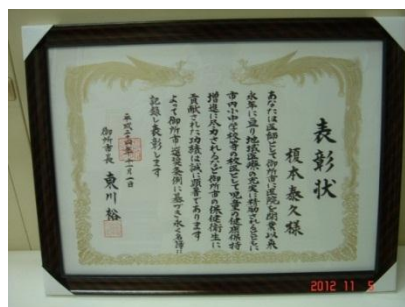 表彰状
榎本泰久様
あなたは医師として御所市に医院を開業以来
永年に亘り地域医療の充実に精励されるとともに
市内小中学校等の校医として児童の健康保持
増進に尽力されるなど御所市の保健衛生に
貢献された功績は誠に顕著であります
よって御所市選奨条例に基づき永く名簿に
記録し表彰します
平成二十四年十一月一日
御所市長 東川裕
2012 11 5